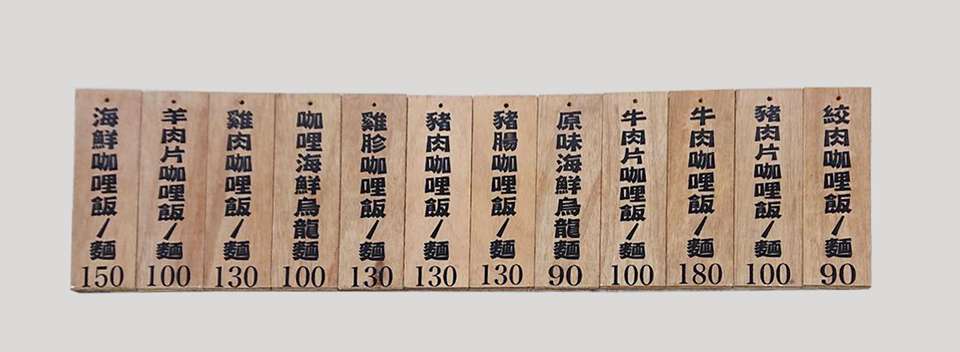 海鮮咖哩飯/麵
150
羊肉片咖哩飯/麵
100
雞肉咖哩飯/麵
130
咖哩海鮮烏龍麵
100
雞胗咖哩飯/麵
130
豬肉咖哩飯/麵
130
豬腸咖哩飯/麵
130
原味海鮮烏龍麵
90
牛肉片咖哩飯/麵
100
牛肉咖哩飯/麵
180
豬肉片咖哩飯/麵
100
絞肉咖哩飯/麵
90